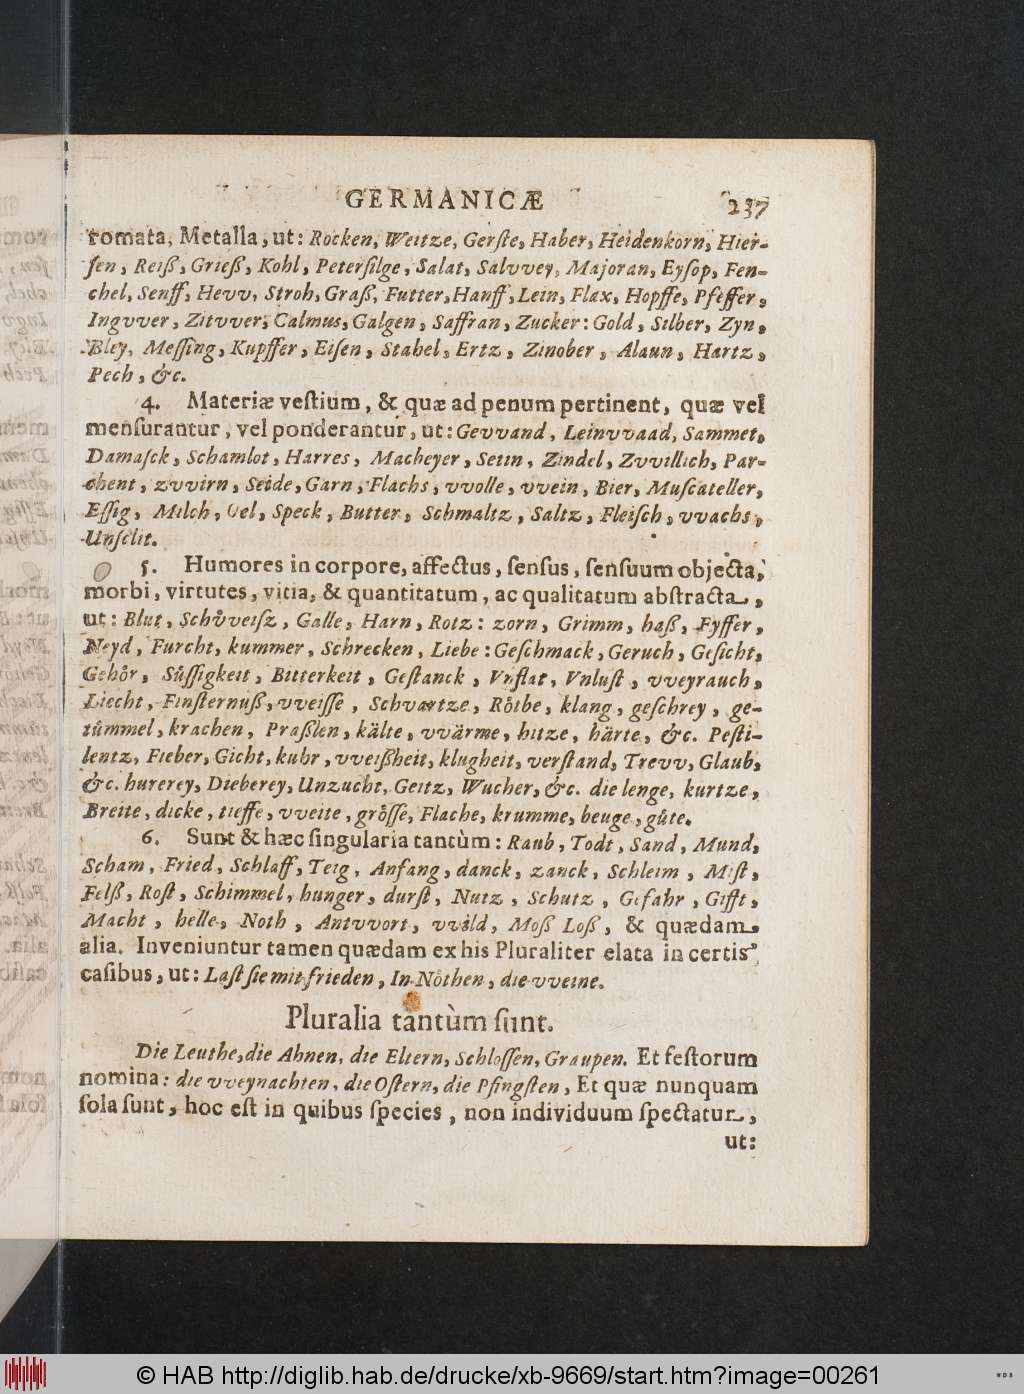 GERMANICÆ 237
romata, Metalla, ut: Rocken, Weitze, Gerſte, Haber, Heidenkorn, Hier-
ſen, Reiß, Grieß, Kohl, Peterſilge, Salat, Salvvey, Majoran, Eyſop, Fen-
chel, Senff, Hevv, Stroh, Graß, Futter, Hanff, Lein, Flax, Hopffe, Pfeffer,
Ingvver, Zitvver, Calmus, Galgen, Saffran, Zucker: Gold, Silber, Zyn,
Bley, Meſſing, Kupffer, Eiſen, Stahel, Ertz, Zinober, Alaun, Hartz,
Pech, &c.
4. Materiæ veſtium, & quæ ad penum pertinent, quæ vel
menſurantur, vel ponderantur, ut: Gevvand, Leinvvaad, Sammet,
Damaſck, Schamlot, Harres, Macheyer, Setin, Zindel, Zvvillich, Par-
chent, zvvirn, Seide, Garn, Flachs, vvolle, vvein, Bier, Muſcateller,
Eſſig, Milch, Oel, Speck, Butter, Schmaltz, Saltz, Fleiſch, vvachs,
Unſclit.
5. Humores in corpore, affectus, ſenſus, ſenſuum objecta,
morbi, virtutes, vitia, & quantitatum, ac qualitatum abſtracta,
ut: Blut, Schůveiſz, Galle, Harn, Rotz: zorn, Grimm, haß, Eyffer,
Neyd, Furcht, kummer, Schrecken, Liebe: Geſchmack, Geruch, Geſicht,
Gehoͤr, Suͤſſigkeit, Bitterkeit, Geſtanck, Vnflat, Vnluſt, vveyrauch,
Liecht, Finſternuß, vveiſſe, Schvartze, Roͤthe, klang, geſchrey, ge-
tuͤmmel, krachen, Praßlen, kälte, vvärme, hitze, härte, &c. Peſti-
lentz, Fieber, Gicht, kuhr, vveißheit, klugheit, verſtand, Trevv, Glaub,
&c. hurerey, Dieberey, Unzucht, Geitz, Wucher, &c. die lenge, kurtze,
Breite, dicke, tieffe, vveite, groͤſſe, Flache, krumme, beuge, guͤte.
6. Sunt & hæc ſingularia tantùm: Raub, Todt, Sand, Mund,
Scham, Fried, Schlaff, Teig, Anfang, danck, zanck, Schleim, Miſt,
Felß, Roſt, Schimmel, hunger, durſt, Nutz, Schutz, Gefahr, Gifft,
Macht, helle, Noth, Antvvort, vvild, Moß Loß, & quædam
alia. Inveniuntur tamen quædam ex his Pluraliter elata in certis
caſibus, ut: Laſt ſie mit frieden, In Noͤthen, die vveine.
Pluralia tantùm ſunt.
Die Leuthe, die Ahnen, die Eltern, Schloſſen, Graupen. Et feſtorum
nomina: die vveynachten, die Oſtern, die Pfingſten, Et quæ nunquam
ſola ſunt, hoc eſt in quibus ſpecies, non individuum ſpectatur,
ut:
© HAB http://diglib.hab.de/drucke/xb-9669/start.htm?image=00261